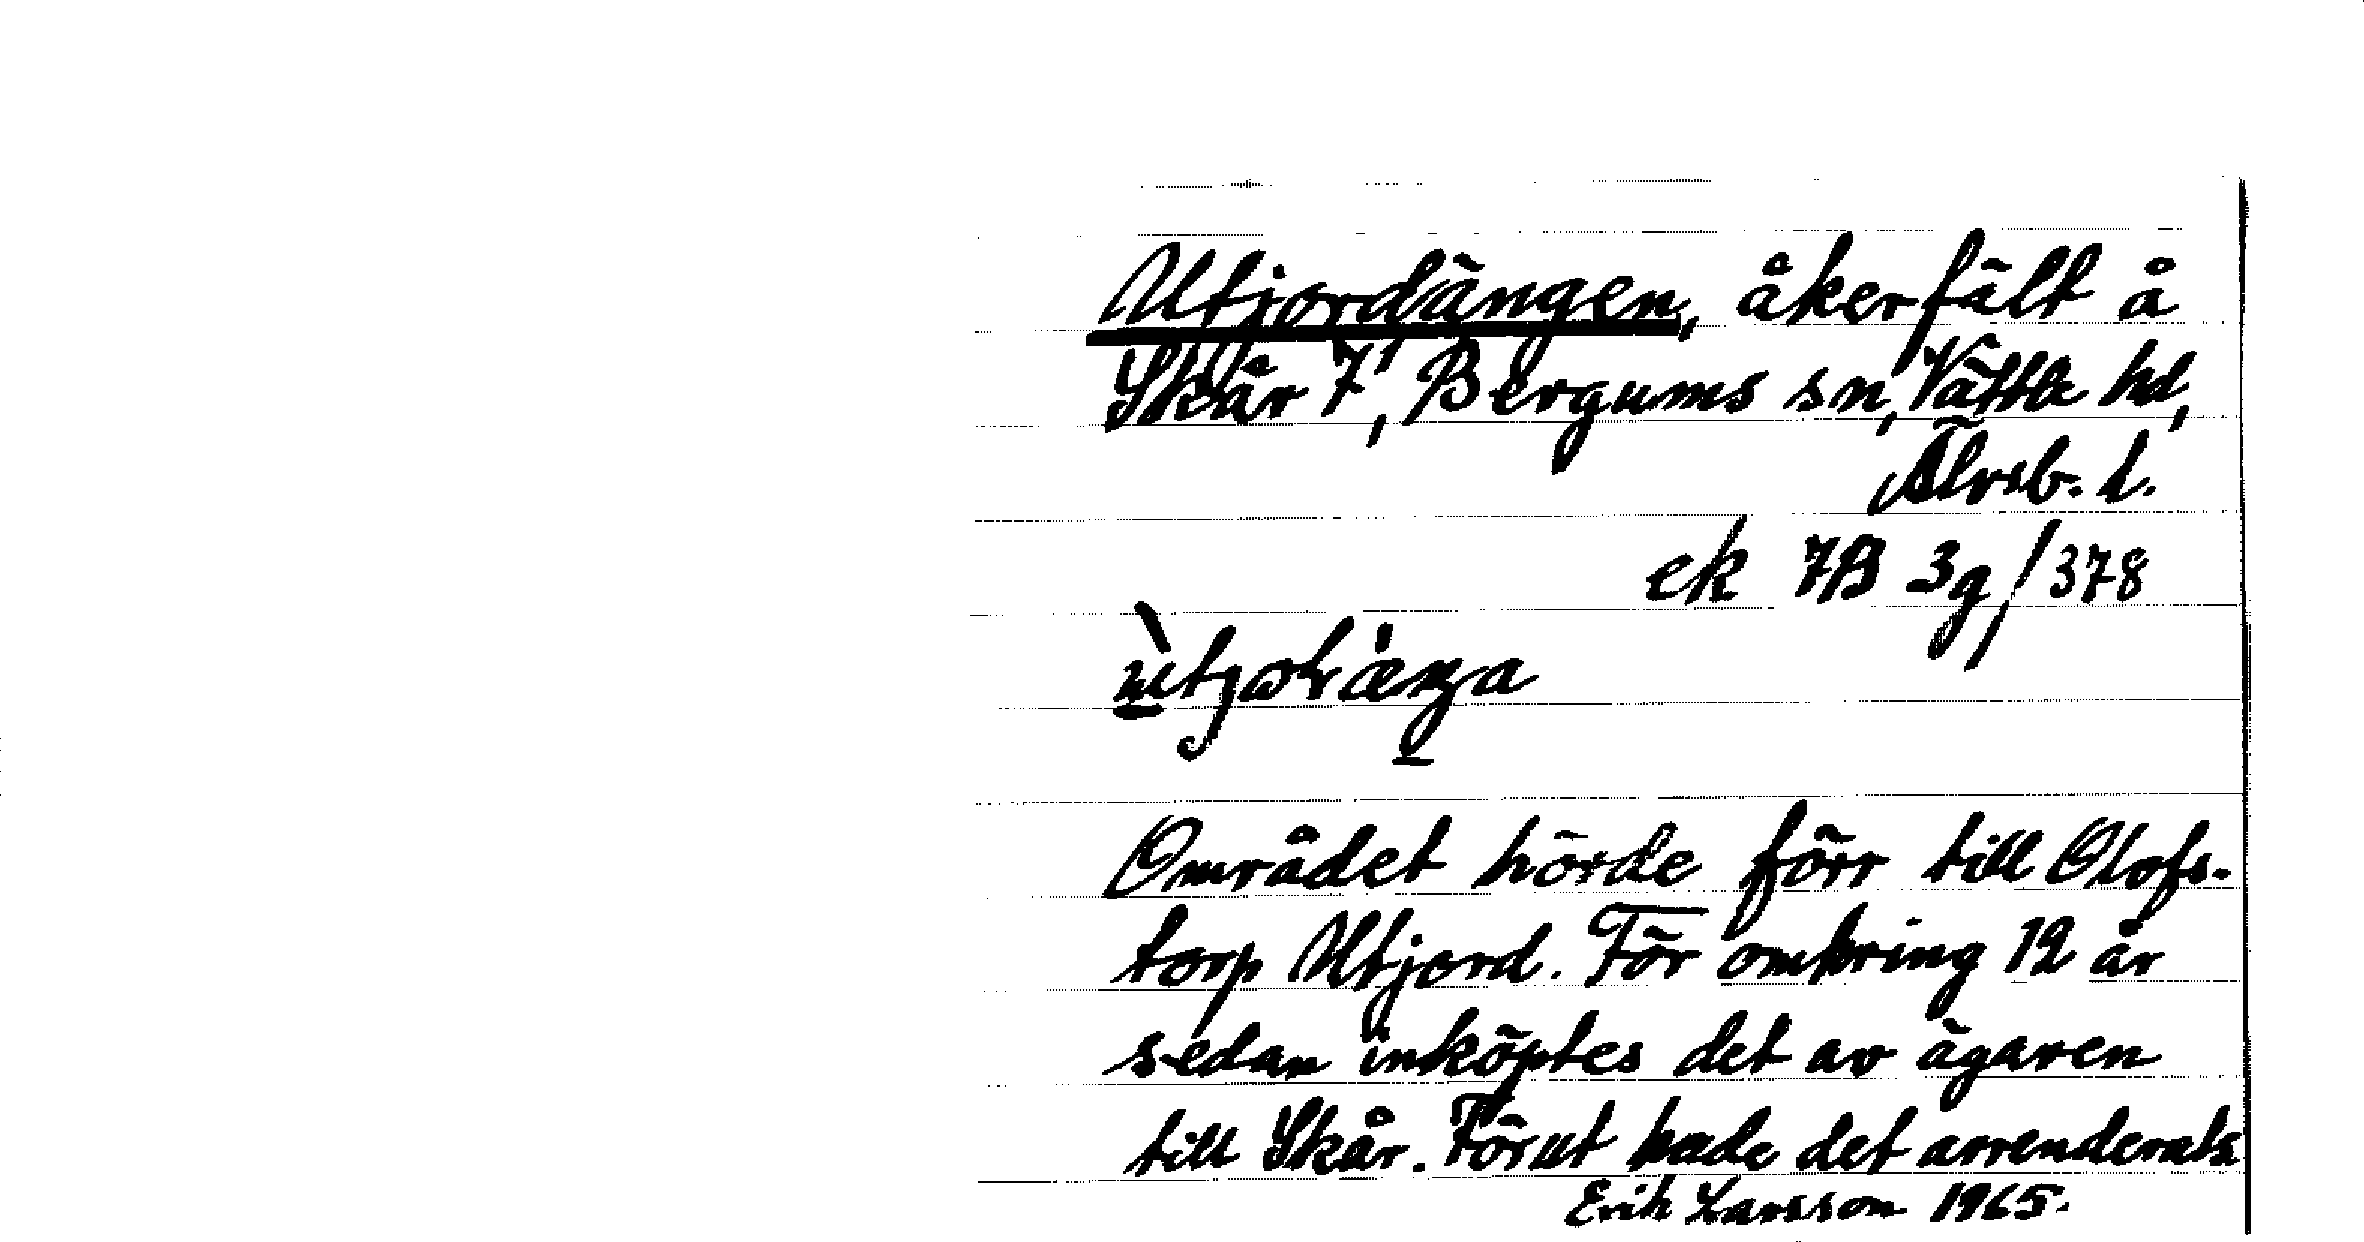 Utjordängen, åkerfält å
Skår 7¹, Bergums sn, Vättle hd,
Älvsb. l.
ek 7B 3g/378
Området hörde förr till Olofs-
torp Utjord. För omkring 12 år
sedan inköptes det av ägaren
till Skår. Förut hade det arrenderats
Erik Larsson 1965.